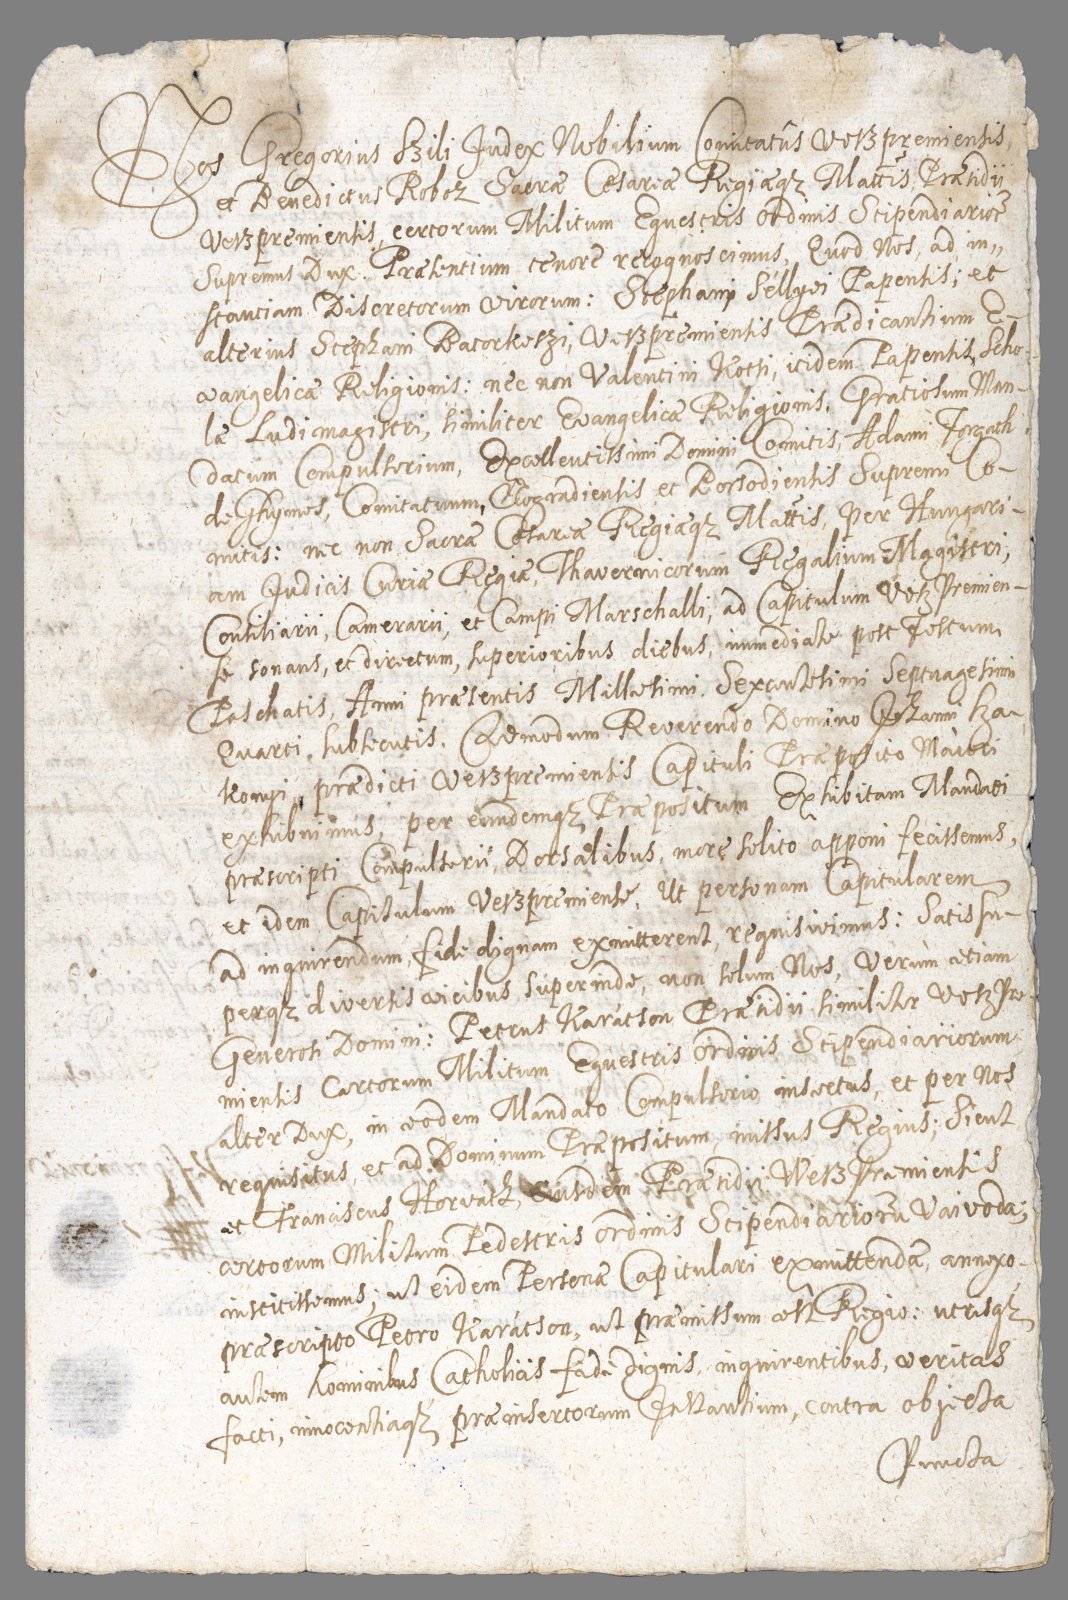 Nos Gregorius Szili Judex Nobilium Comitatûs Veszpremiensis,
et Benedictus Roboz Sacræ Cæsareæ Regiæqz Mattis, Præsidii
Veszpremiensis, certorum Militum Equestris ordinis Stipendiarior̃
Supremus Dux. Præsentium tenore recognoscimus, Quod Nos, ad in,,
stantiam Discretorum virorum: Stephani Séllyei Papensis; et
alterius Stephani Bátorkeszi, Veszpremiensis Prædicantium E-
vangelicæ Religionis: nec non Valentini Kochi, itidem Papensis Scho-
læ Ludimagistri, similiter Evangelicæ Religionis. Gratiosum Man-
datum Compulsorium, Excellentissimi Domini Comitis, Adami Forgach
de Ghymes, Comitatuum, Neogradiensis et Borsodiensis Supremi Co-
mitis: nec non Sacræ Cæsareæ Regiæqz Mattis, per Hungari-
am Judicis Curiæ Regiæ, Thavernicorum Regalium Magistri,
Consiliarii, Camerarii, et Campi Marschalli, ad Capitulum Veszpremien-
se sonans, et directum, superioribus diebus, immediate post Festum
Paschatis, Anni præsentis Millesimi Sexcentesimi Septuagesimi
Quarti, subsecutis. Admodum Reverendo Domino Johanni Sza-
konyi, prædicti Veszpremiensis Capituli Præposito Maiori
exhibuimus, per eundemqz Præpositum Exhibitam Mandati
præscripti Compulsorii, Dorsalibus, more solito apponi fecissemus,
et idem Capitulum Veszpremiense, Ut personam Capitularem
ad inquirendum, fide dignam exmitterent, requisivimus: Satis su-
perqz diversis vicibus, superinde, non solum Nos, Verùm etiam
Generosi Domini: Petrus Karácson Præsidii similiter Veszpre-
miensis Certorum Militum Equestris ordinis Stipendiariorum
alter Dux, in eodem Mandato Compulsorio insertus, et per Nos
requisitus, et ad Dominum Præpositum missus Regius; Sicut
et Franciscus Horvath, eiusdem Præsidii Weszpræmiensis
certorum Militum Pedestris ordinis Stipendiariorũ Vaivoda;
institissemus; ut eidem Personæ Capitulari exmittendæ, annexo
præscripto Petro Karácson, ut præmissum est Regio: utrisqz
autem hominibus Catholicis fide dignis, inquirentibus, veritas
facti, innocentiaqz præinsertorum Instantium, contra objecta
Puncta